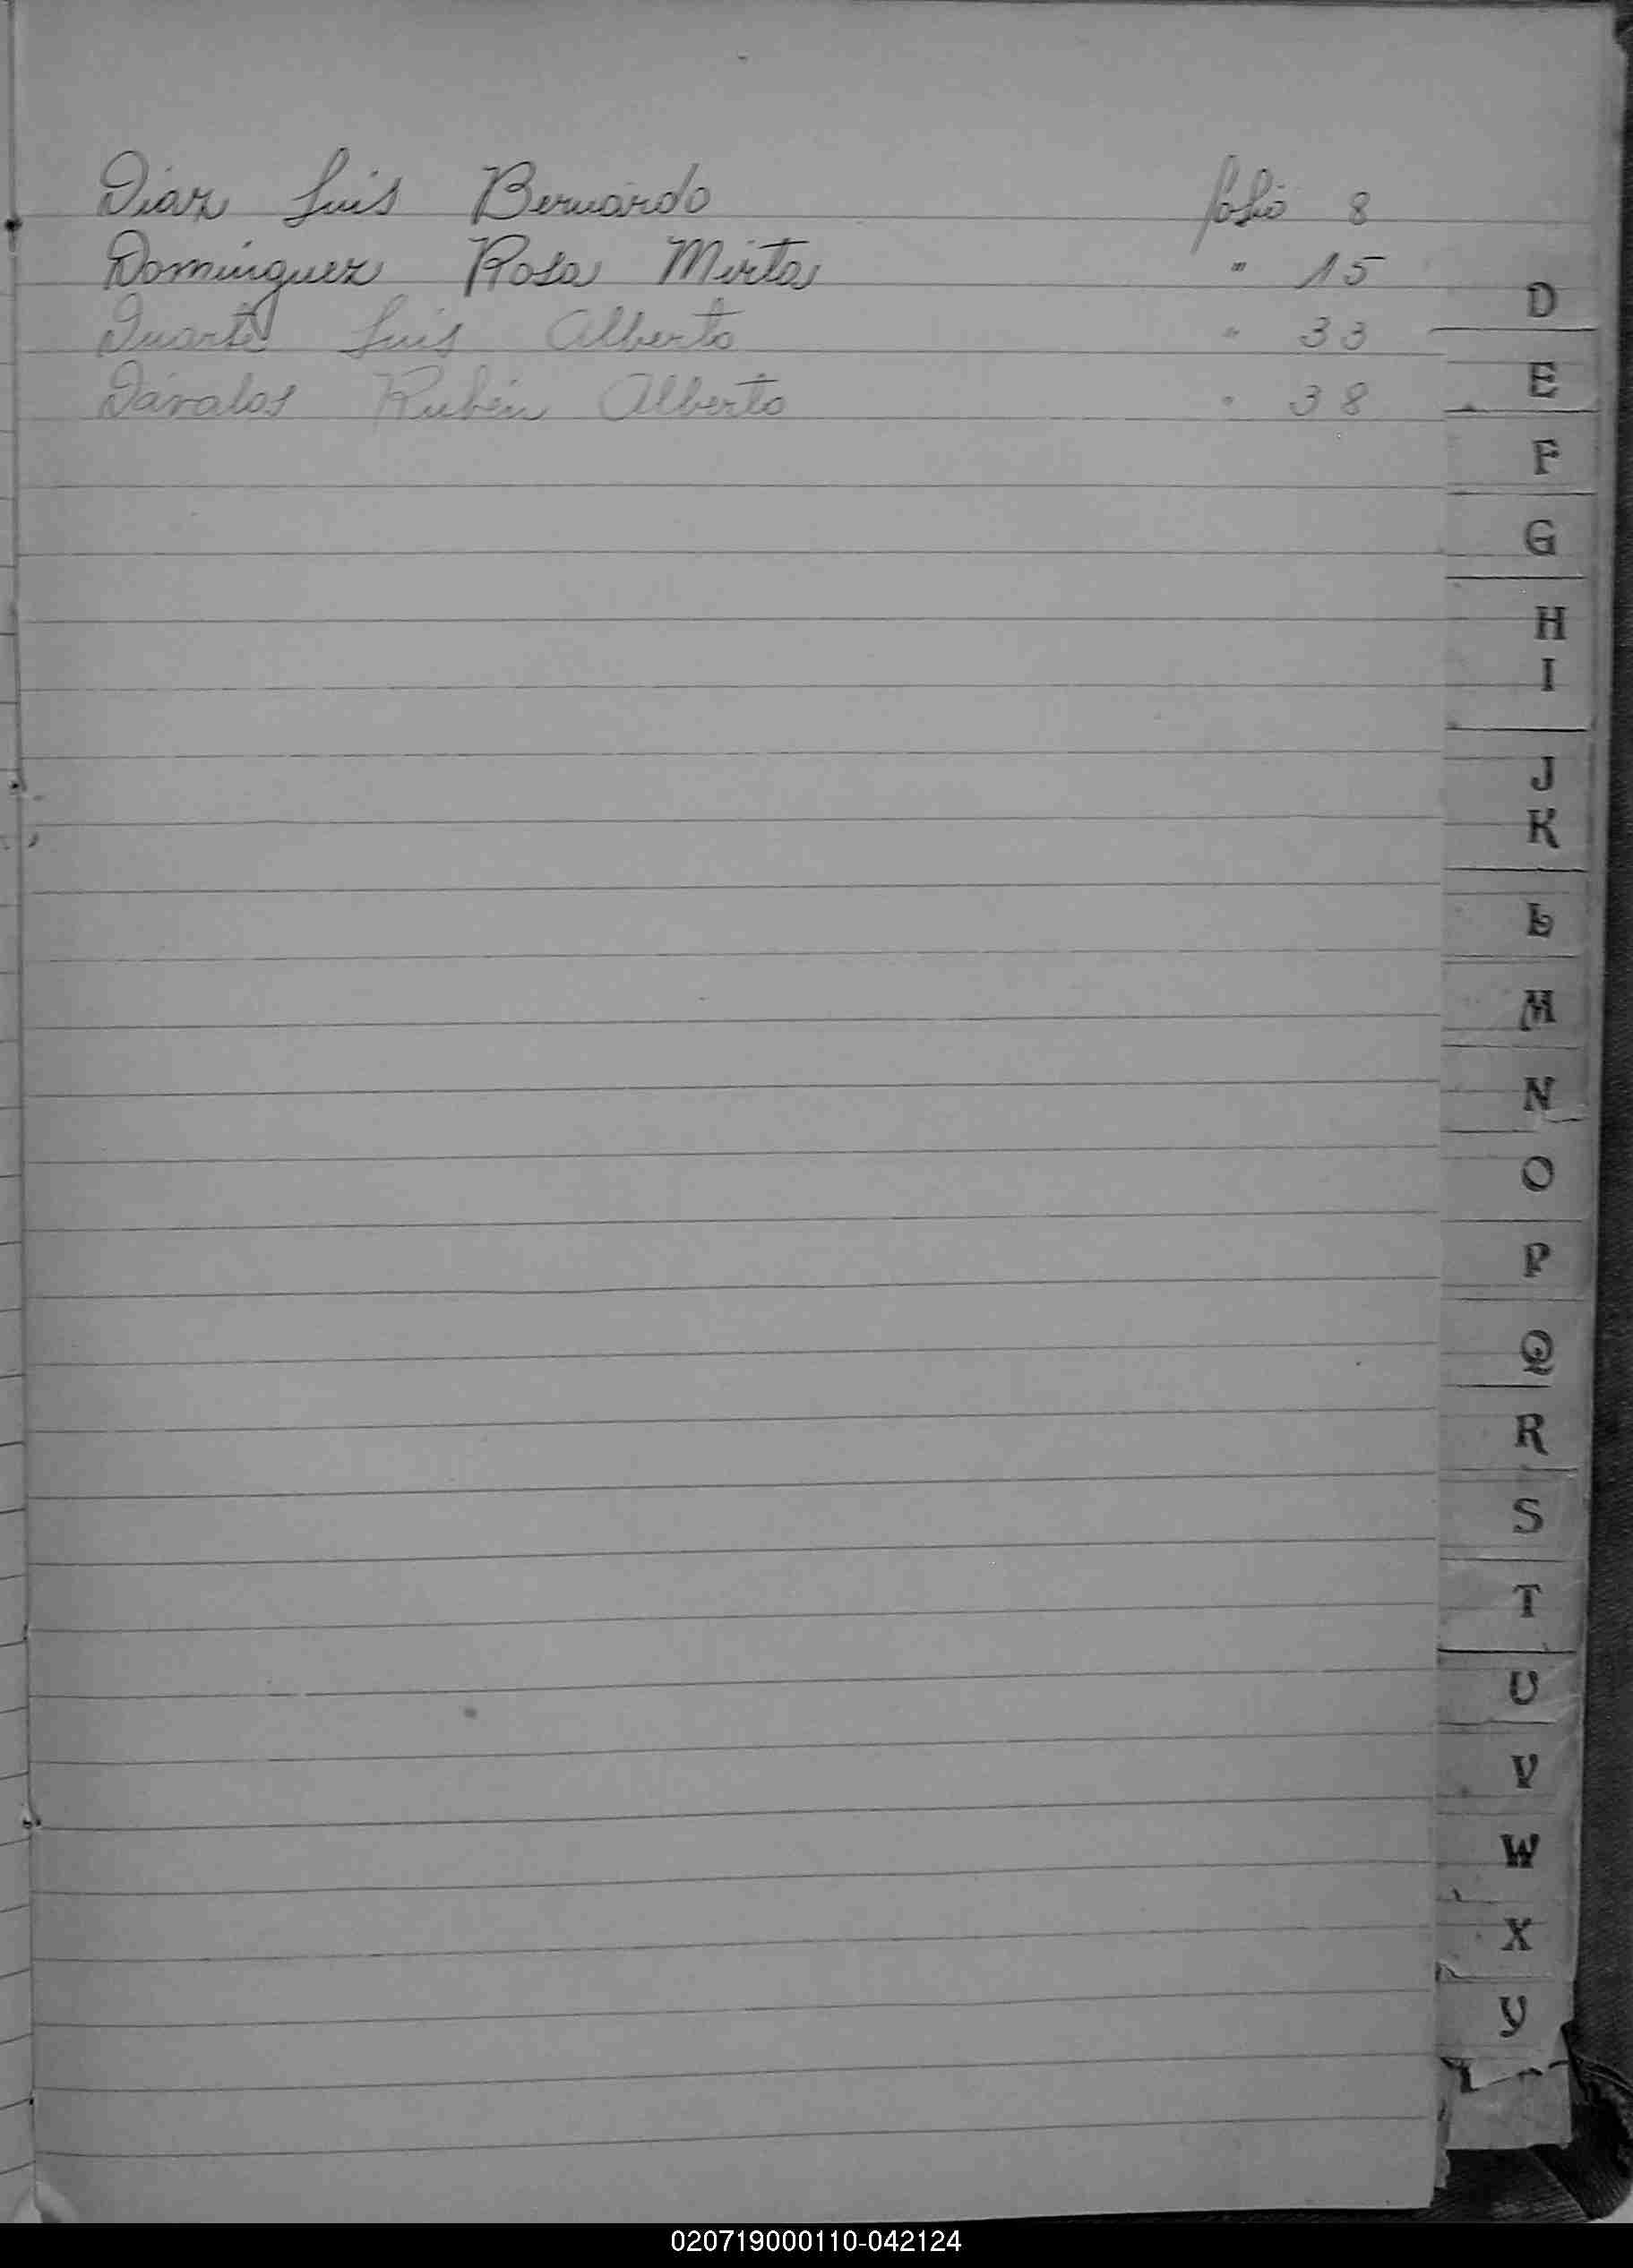 Diaz Luis Bernardo folio 8
Dominguez Rosa Mirta " 15
Duarte Luis Alberto " 33
Dávalos Rubén Alberto " 38
D
E
F
G
H
I
J
K
L
M
N
O
P
Q
R
S
T
U
V
W
X
Y
020719000110-042124